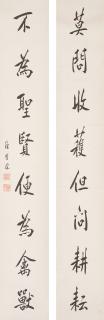 莫問收穫但問耕耘
不為聖賢便為禽獸